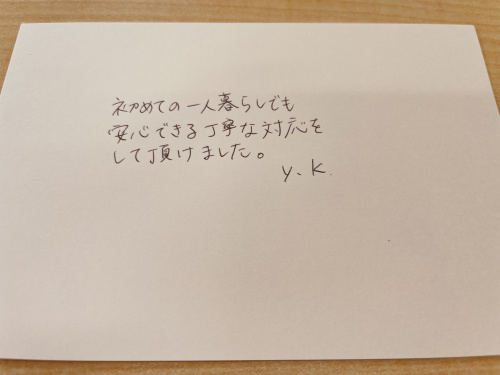 初めての一人暮らしでも
安心できる丁寧な対応を
して頂けました。
y、k.